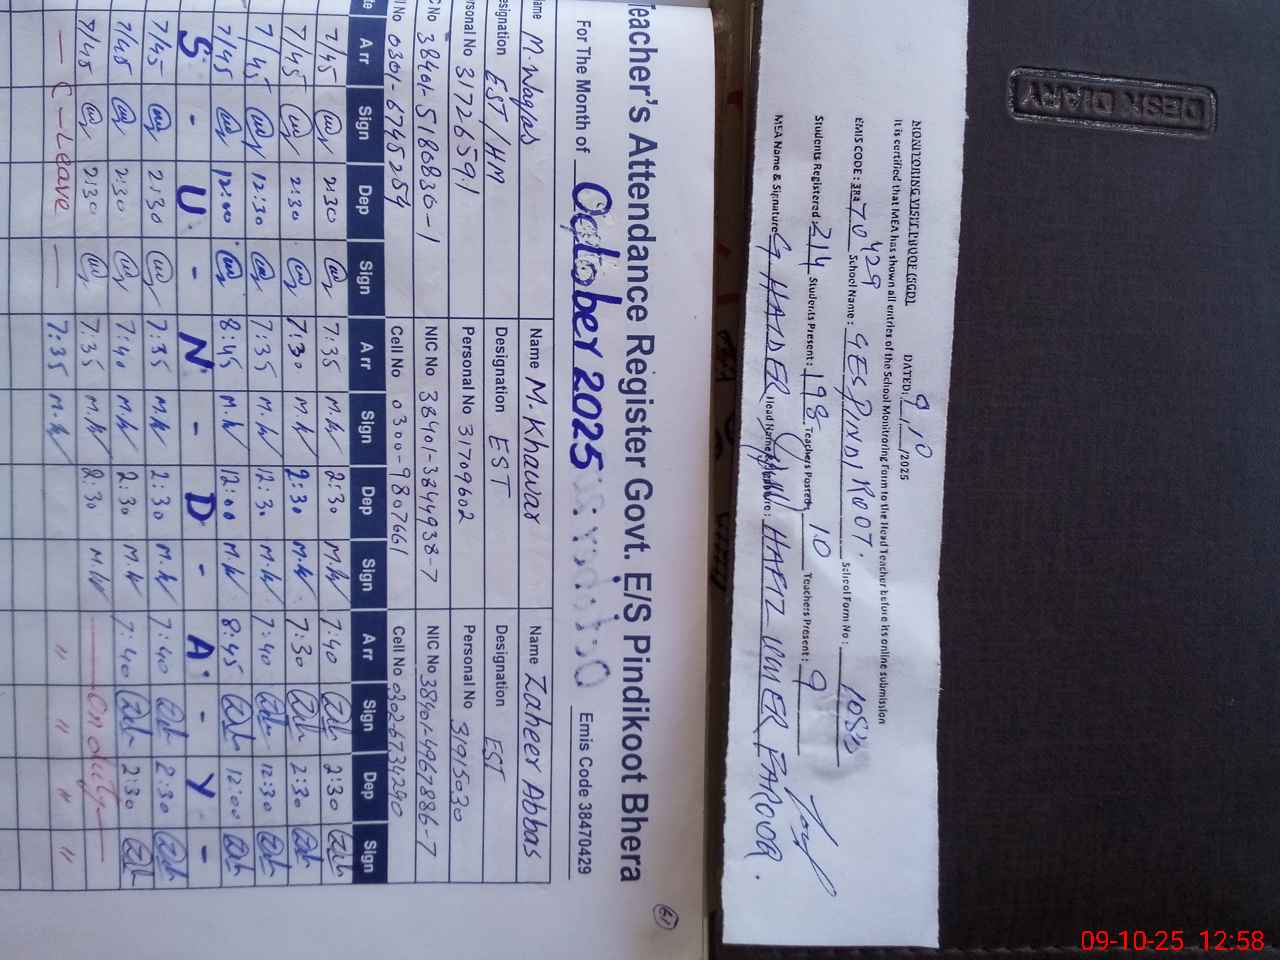 DESK DIARY
MONITORING VISIT PROOF (SGD)
DATED: 9/10/2025
It is certified that MEA has shown all entries of the School Monitoring Form to the Head Teacher before its online submission
EMIS CODE: 384 70429 School Name: GES PINDI KOOT. School Form No:
Students Registered: 214 Students Present: 198 Teachers Posted: 10 Teachers Present: 9
MEA Name & Signature: G HAIDER Head Name & Signature: HAFIZ UMER FAROOQ.
Teacher's Attendance Register Govt. E/S Pindikoot Bhera
For The Month of October 2025 Emis Code 38470429
61
Name M. Waqas Name M. Khawar Name Zaheer Abbas
Designation EST/HM Designation EST Designation EST
Personal No 31726591 Personal No 31709602 Personal No 31915030
NIC No 38401-5180836-1 NIC No 38401-3844938-7 NIC No 38401-4967886-7
Cell No 0301-6745254 Cell No 0300-9807661 Cell No 03026734290
Arr Sign Dep Sign Arr Sign Dep Sign Arr Sign Dep Sign
7/45 2:30 7:35 M.W 2:30 M.W 7:40 2:30
7/45 2:30 7:30 M.W 2:30 M.W 7:30 2:30
7/45 12:30 7:35 M.W 12:30 M.W 7:40 12:30
7/45 12:00 8:45 M.W 12:00 M.W 8:45 12:00
S - U - N - D - A - Y -
7/45 2:30 7:35 M.W 2:30 M.W 7:40 2:30
7/45 2:30 7:40 M.W 2:30 M.W 7:40 2:30
7/45 2:30 7:35 M.W 2:30 M.W On duty
C-Leave 7:35 M.W " " " "
09-10-25 12:58